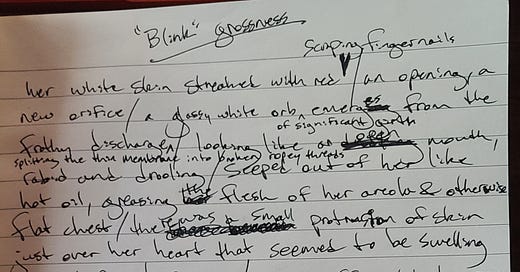 "Blink" grossness
scraping fingernails
her white skin streaked with red / an opening, a
new orifice / a glassy white orb emerges from the
of significant girth
frothy discharge / looking like an mouth,
splitting the thin membrane into broken ropey threads
rabid and drooling / seeped out of her like
hot oil, greasing the flesh of her areola & otherwise
flat chest / there was a small protrusion of skin
just over her heart that seemed to be swelling